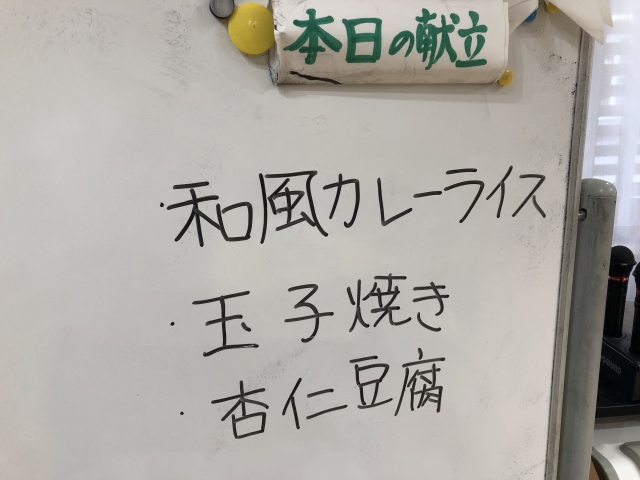 本日の献立
・和風カレーライス
・玉子焼き
・杏仁豆腐